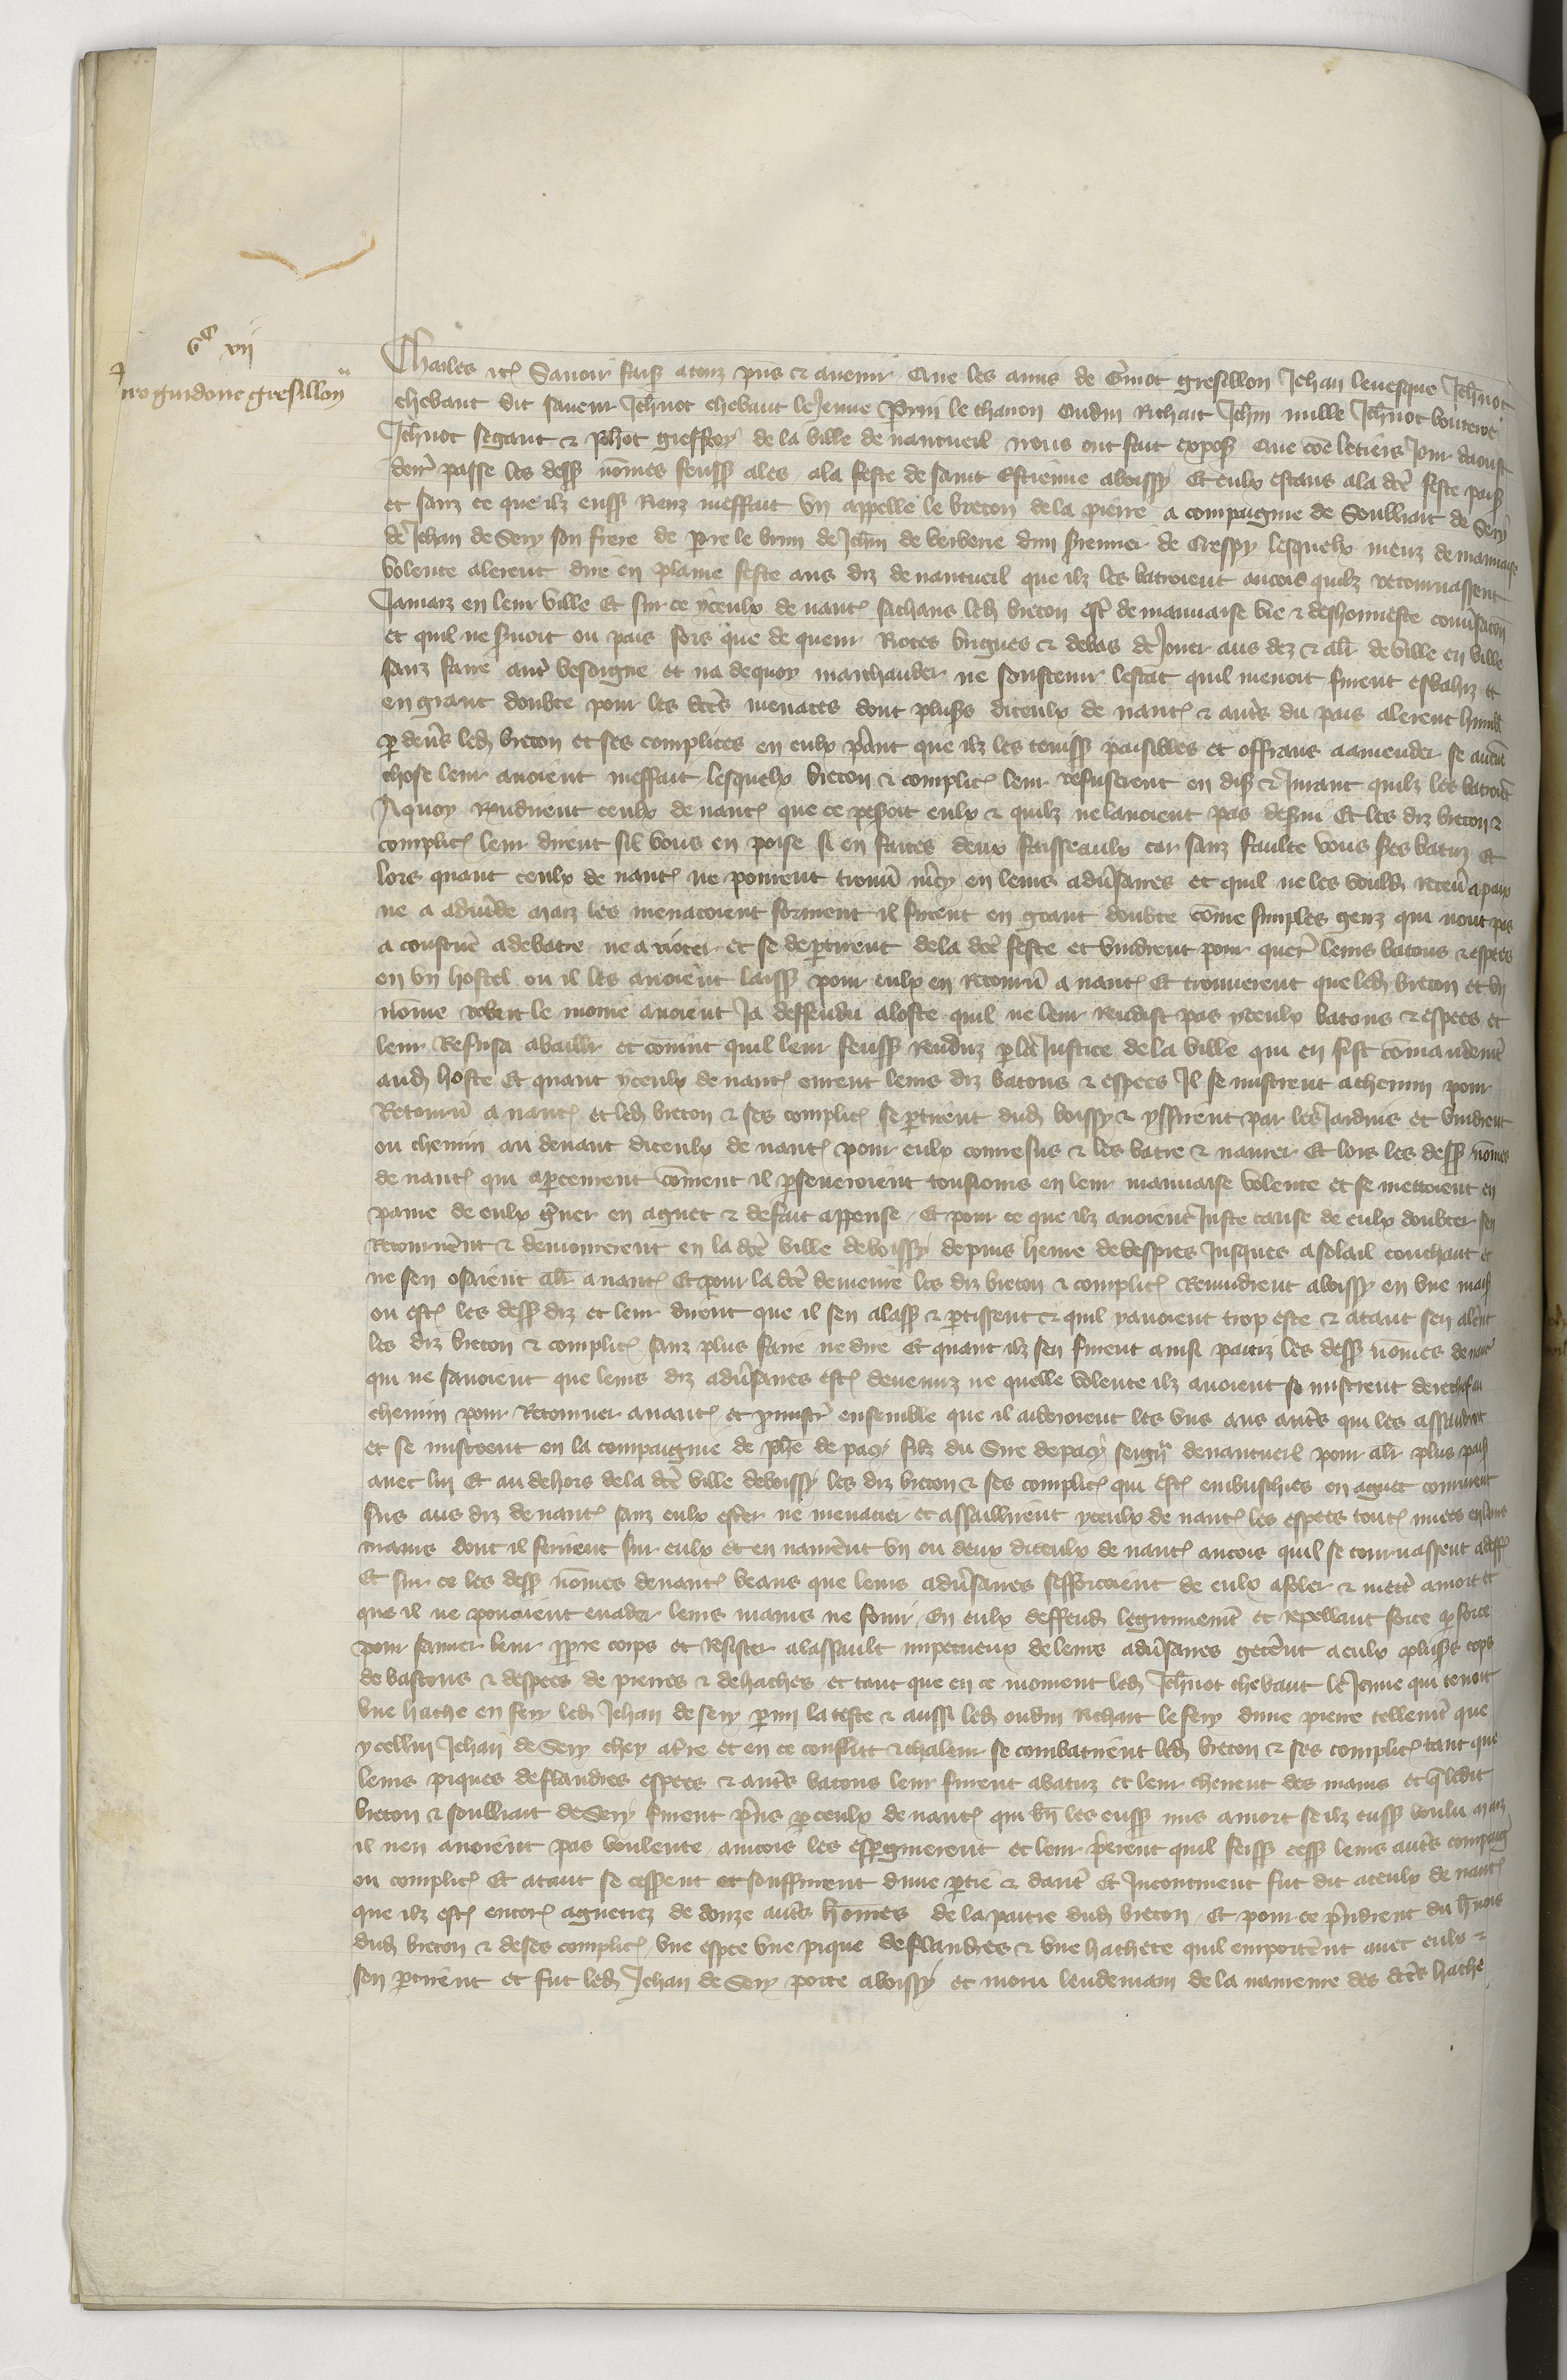 vᶜ xvij
pro guidone gresillon
Charles etc̃ Savoir fais̃ a touz p̃ns et avenir Que les amis de G̃uiot gresillon Jehan levesque Jeh̃not
chevant dit saveur Jeh̃not chevaut le Jeune Perrin le chanon Oudin Richart Jeh̃n mulle Jeh̃not bouterot
Jeh̃not segaut & Ph̃ot gieffroy de la ville de nantueil nous ont fait expos̃ Que cõe le tiers Jour daoust
derr̃ passe les dess̃ nõmes feuss̃ ales a la feste de saint Estienne a boissy Et eulx estans a la dc̃e feste pais̃
et sanz ce que ilz euss̃ Renz meffait un appelle le breton de la pierre a compaignie de Soulliart de Sery
de Jehan de Sery son frere de p̃re le brun de Jeh̃n de verberie dun sermier de Crespy lesquelx meuz de mauvaise
volente alerent dire en plaine feste aus diz de nantueil que ilz les batroient ancois quilz retournassent
Jamaiz en leur ville Et sur ce yceulx de nant̃ sachans led̃ breton est̃ de mauvaise vie & deshonneste conṽsacõn
et quil ne s̃voit ou pais fors que de querir Rotes brigues & debas de Jouer aus dez & al̃r de ville en ville
sanz faire aut̃ besoigne et na dequoy marchander ne soustenir lestat quil menoit furent esbahiz et
en grant doubte pour les dc̃es menaces dont plus̃s diceulx de nant̃ & aut̃s du pais alerent humbl̃
p̃ deṽs led̃ breton et ses complices en eulx p̃ant que ilz les teniss̃ paisibles et offrans a amender se aucũe
chose leur avoient meffait lesquelx breton & complic̃ leur refuserent en dis̃ & Jurant quilz les batroiẽt
A quoy rendirent ceulx de nant̃ que ce pesoit eulx & quilz ne lavoient pas desvi Et les diz breton &
complic̃ leur dirent sil vous en poise si en faites deux faisseaulx car sanz faulte vous ses batuz Et
lors quant ceulx de nant̃ ne porent trouṽ m̃cy en leurs adṽsaires et quil ne les vould̃ receṽ a paix
ne a adm̃de maiz les menacoient forment il furent en grant doubte cõme simples genz qui nont pas
a coustũe a debatre ne a rioter et se dep̃tirent de la dc̃e feste et vindrent pour quer̃ leurs batons & espees
en un hostel ou il les avoient laiss̃ pour eulx en retourñ a nant̃ Et trouverent que led̃ breton et un
nõme robert le moine avoient Ja deffendu a loste quil ne leur rendist pas yceulx batons & espees et
leur Refusa a baillier et convint quil leur feuss̃ renduz p̃ la Justice de la ville qui en fist cõmandemẽt
aud̃ hoste Et quant yceulx de nant̃ eurent leurs diz batons & espees Il se mistrent a chemin pour
Retourñ a nant̃ et led̃ breton & ses complic̃ se p̃tirent dud̃ boissy & yssirent par les Jardins et vindrent
ou chemin au devant diceulx de nant̃ pour eulx courre sus & les batre & navrer Et lors les dess̃ nõmes
de nant̃ qui ap̃ceurent cõment il p̃severoient tousiours en leur mauvaise volente et se mettoient en
paine de eulx g̃ver en aguet & de fait appense Et pour ce que ilz avoient Juste cause de eulx doubter sen
retournẽent & demourerent en la dc̃e ville de boissy depuis heure de vespres Jusques a solail couchant et
ne sen osoient al̃r a nant̃ Et pour la dc̃e demeure les diz breton & complic̃ Revindrent a boissy en une mais̃
ou est̃ les dess̃ diz et leur dirent que il sen alass̃ & p̃tissent & quil y avoient trop este & atant sen alẽent
les diz breton & complic̃ sanz plus faire ne dire Et quant ilz sen furent ainsi partiz les dess̃ nõmes de nant̃
qui ne savoient que leurs diz adṽsaires est̃ devenuz ne quelle volente ilz avoient se mistrent derechef au
chemin pour Retourner a nant̃ et p̃mist̃ ensemble que il aideroient les uns aus aut̃s qui les assaudroit
et se mistrent en la compaignie de ph̃e de pacy filz du Sire de pacy seign̾ de nantueil pour al̃r plus pais̃
avec lui Et au dehors de la dc̃e ville de boissy les diz breton & ses complic̃ qui est̃ embuschies en aguet coururent
sus aus diz de nant̃ sanz eulx est̃er ne menacier et assaillirent yceulx de nant̃ les espees tout̃ nues en leurs
mains dont il ferirent sur eulx et en navrẽent un ou deux diceulx de nant̃ ancois quil se tournassent a deff̃
Et sur ce les dess̃ nõmes de nant̃ veans que leurs adṽsaires sefforcoient de eulx afoler & mett̃ a mort et
que il ne povoient evader leurs mains ne fouir En eulx deffend̃ legitimemẽt et repellant force p̃ force
pour sauver leur p̃pre corps et resister a lassault impetueux de leurs adṽsaires getẽent a eulx plus̃s cops
de bastons & despees de pierres & de haches et tant que en ce moment led̃ Jeh̃not chevaut le Jeune qui tenoit
une hache en fery led̃ Jehan de sery p̃mi la teste & aussi led̃ oudin Richart le fery dune pierre tellemẽt que
ycellui Jehan de Sery chey a t̃re et en ce conflict & chaleur se combatirent led̃ breton & ses complic̃ tant que
leurs piques de flandres espees & aut̃s batons leur furent abatuz et leur cheirent des mains et q̃ ledit
breton & soulliart de Sery furent p̃ns p̃ ceulx de nant̃ qui bñ les euss̃ mis a mort se ilz euss̃ voulu maiz
il nen avoient pas voulente aincois les esp̃gnierent et leur p̃erent quil feiss̃ cess̃ leurs aut̃s compaig̃
ou complic̃ Et atant se cesserent et souffrirent dune p̃tie & daut̃ Et Incontinent fut dit a ceulx de nant̃
que ilz est̃ encor̃ aguetiez de douze aut̃s hõmes de la partie dud̃ breton Et pour ce p̃ndrent du h̃nois
dud̃ breton & de ses complic̃ une espee une pique de flandres & une hachete quil emportẽent avec eulx &
sen p̃tirent et fut led̃ Jehan de Sery porte a boissy et moru lendemain de la navreure des dc̃es hache